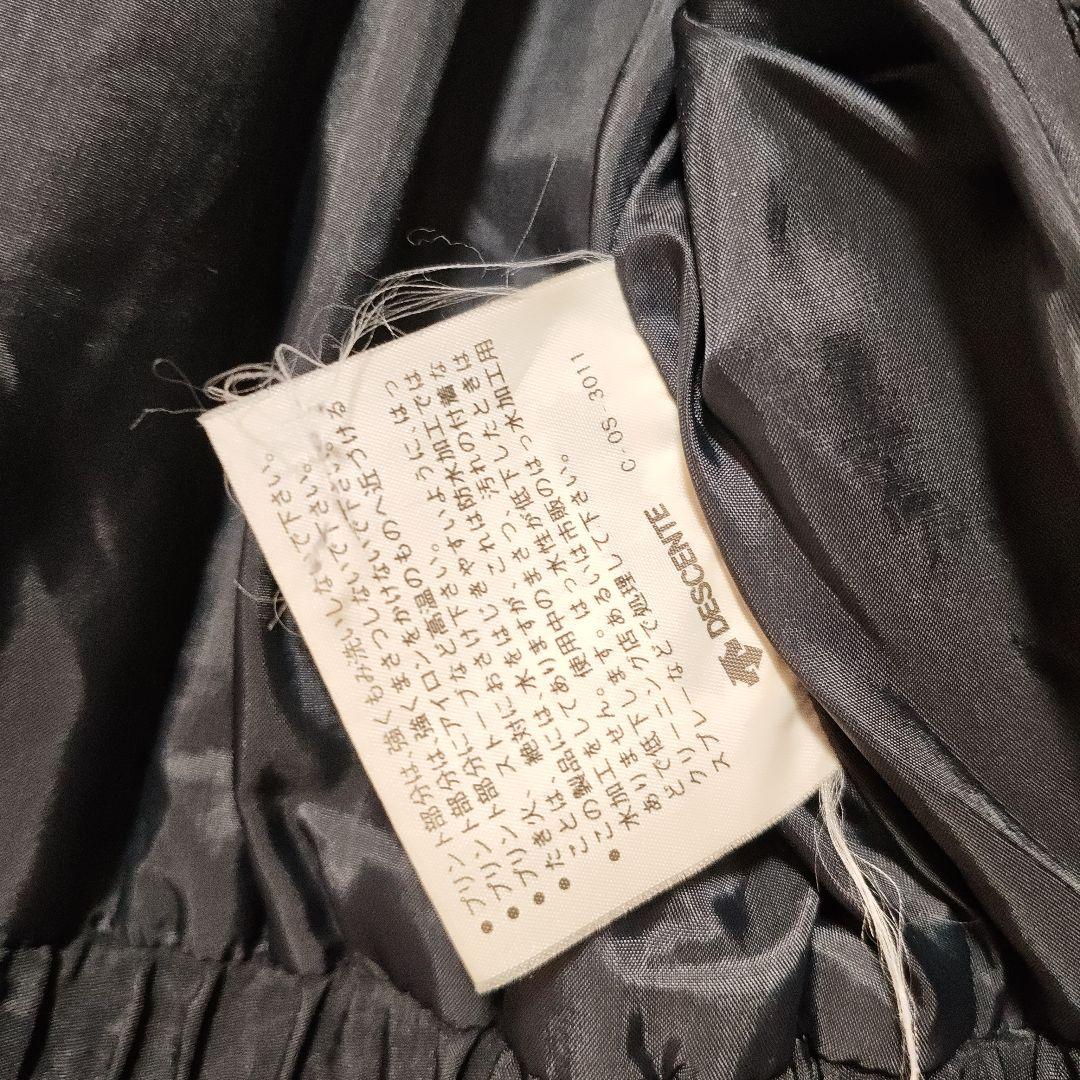 ●プリント部分は、強くもみ洗いしないで下さい。
●プリント部分は強くまさつしないで下さい。
●プリント部分にアイロンをかけないで下さい。
●たき火、ストーブなど高温のものへ近づける
ことは、絶対におさけ下さい。
●この製品には、水をはじきやすいように、はっ
水加工をしてありますが、これは防水加工では
ありません。使用中のまさつ、汚れの付着な
どで低下します。はっ水性が低下したときは
クリーニング店あるいは市販のはっ水加工用
スプレーなどで処理して下さい。
DESCENTE C-OS-3011